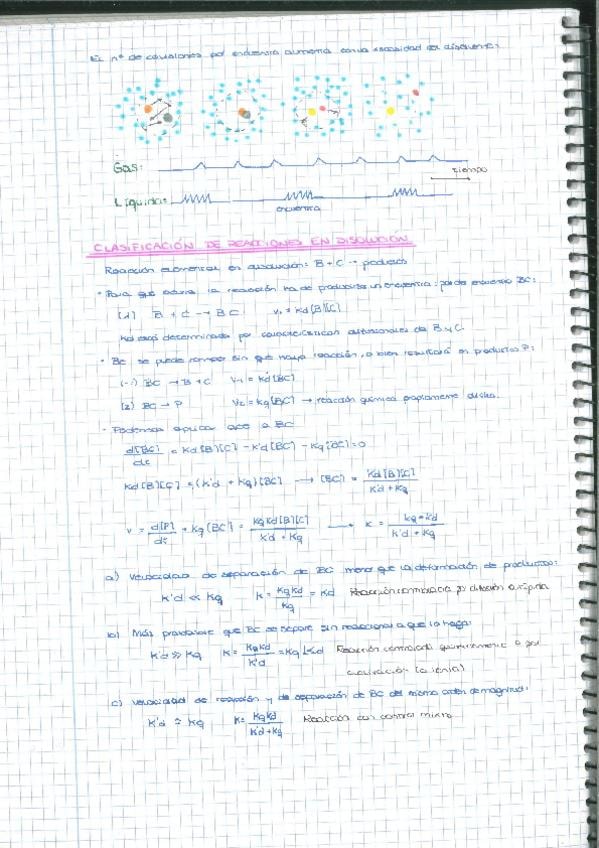 El nº de colisiones por encuentro aumenta con la viscosidad del disolvente:
Gas:
tiempo
Líquido:
encuentro
CLASIFICACIÓN DE REACCIONES EN DISOLUCIÓN
Reacción elemental en disolución: B + C → productos
· Para que ocurra la reacción ha de producirse un encuentro: par de encuentro BC:
(1) B + C → BC v₁ = Kd[B][C]
Kd está determinada por características difusionales de B y C.
· BC se puede romper sin que haya reacción, o bien resultará en productos P:
(-1) BC → B + C V-1 = K'd[BC]
(2) BC → P V2 = Kq[BC] → reacción química propiamente dicha.
· Podemos aplicar a BC
d[BC]/dt = Kd[B][C] - K'd[BC] - Kq[BC] = 0
Kd[B][C] = (K'd + Kq)[BC] → [BC] = Kd[B][C]/K'd + Kq
v = d[P]/dt = Kq[BC] = KqKd[B][C]/K'd + Kq → K = Kq·Kd/K'd + Kq
a) Velocidad de separación de BC menor que la de formación de productos:
K'd << Kq K = KqKd/Kq = Kd Reacción controlada por difusión o rápida
b) Más probable que BC se separe sin reaccionar a que lo haga:
K'd >> Kq K = KqKd/K'd Reacción controlada químicamente o por
activación (lenta)
c) Velocidad de reacción y de separación de BC del mismo orden de magnitud:
K'd ≈ Kq K = KqKd/K'd+Kq Reacción con control mixto